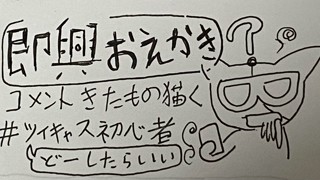 即興おえかき
?
コメントきたもの猫く
#ツイキャス初心者
どーしたらいい